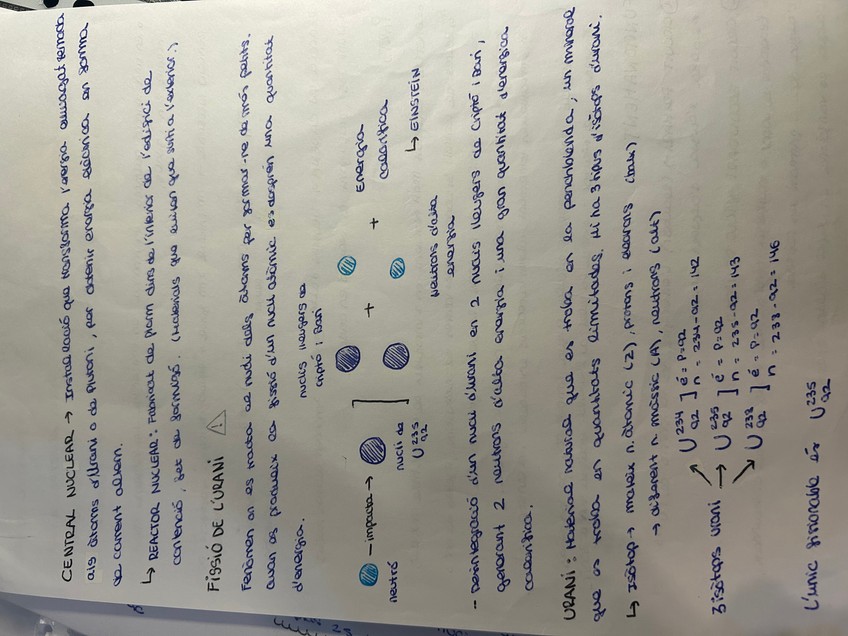 CENTRAL NUCLEAR → Instal·lació que transforma l'energia amagatzemada
als àtoms d'Urani o de Plutoni, per obtenir energia elèctrica en forma
de corrent altern.
↳ REACTOR NUCLEAR: Fabricat de plom dins de l'interior de l'edifici de
contenció, fet de formigó. (Materials que eviten que surti a l'exterior.)
FISSIÓ DE L'URANI ⚠
Fenòmen on es tracta de nuclis dels àtoms per formar-ne de més petits.
Quan es produeix la fissió d'un nucli atòmic es desprèn una quantitat
d'energia.
nuclis lleugers de
Criptó i Bari
neutró
— impacta →
nucli de
U 235 92
+
+
Energia
calorífica
↳ EINSTEIN
Neutrons d'alta
energia
- Desintegració d'un nucli d'urani en 2 nuclis lleugers de Criptó i Bari,
generant 2 neutrons d'alta energia i una gran quantitat d'energia
calorífica.
URANI: Material natural que es troba en la penchblenda, un mineral
que es troba en quantitats limitades. Hi ha 3 tipus d'isòtops d'urani.
↳ Isòtop → mateix n. atòmic (Z), protons i electrons (baix)
→ diferent n. màssic (A), neutrons (alt)
3 isòtops urani
↗ U 234 92 ] é = p = 92
n = 234 - 92 = 142
→ U 235 92 ] é = p = 92
n = 235 - 92 = 143
↘ U 238 92 ] é = p = 92
n = 238 - 92 = 146
L'únic fisionable és U 235 92